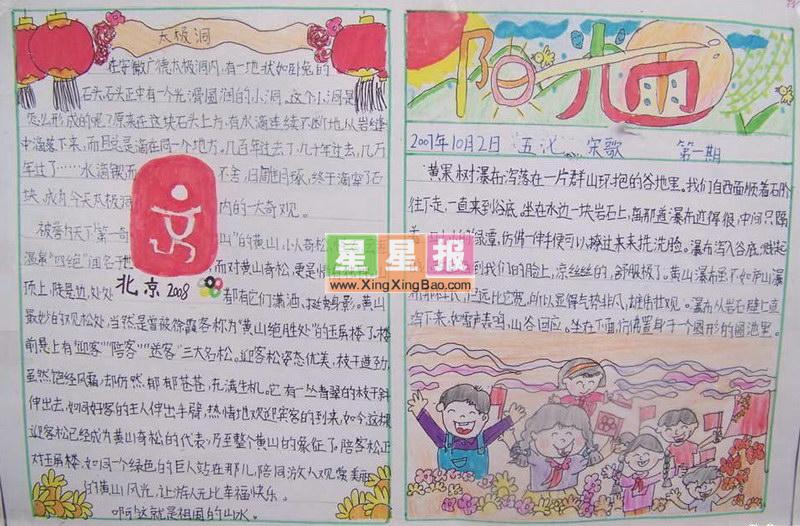 太极洞
在安徽广德太极洞内,有一地状如卧兔的
石头,石头正中有一个光滑圆润的小洞。这个小洞是
怎么形成的呢?原来在这块石头上方,有水滴连续不断地从岩缝
中滴落下来,而且总是滴在同一个地方,几百年过去了,几千年过去,几万
年过了……水滴锲而
不舍,日雕月琢,终于滴穿了石
块,成为今天太极洞
内的一大奇观。
被誉为天下第一奇
山”的黄山,以奇松
“四绝”闻名于世
而对黄山奇松,更是
顶上,陡崖边,处处
都有它们潇洒、挺秀的身影。黄山
最妙的观松处,当然是曾被徐霞客称为“黄山绝胜处”的玉屏楼了。楼
前悬上有“迎客”“陪客”“送客”三大名松。迎客松姿态优美,枝干遒劲,
虽然饱经风霜,却仍然郁郁苍苍,充满生机。它有一丛青翠的枝干斜
伸出去,如同好客的主人伸出手臂,热情地欢迎宾客的到来。如今这棵
迎客松已经成为黄山奇松的代表,乃至整个黄山的象征了。陪客松正
对玉屏楼,如同一个绿色的巨人站在那儿,陪同游人观赏美丽
的黄山风光,让游人无比幸福快乐。
啊!这就是祖国的山水。
京
北京2008
阳光雨
2007年10月2日 宋歌 第一期
黄果树瀑布泻落在一片群山环抱的谷地里。我们自西面顺着石阶
往下走,一直来到谷底,坐在水边一块岩石上,离那道瀑布近得很,中间只隔
着
的绿潭,仿佛一伸手便可以捧过来洗洗脸。瀑布泻入谷底,溅起
到我们的脸上,凉丝丝的,舒服极了。黄山瀑布虽不如庐山瀑
但远比它宽,所以显得气势非凡,雄伟壮观。瀑布从岩石壁上直
泻下来,如雷声轰鸣,山谷回应。坐在下面仿佛置身于一个圆形的
池里。
星星报
www.XingXingBao.com